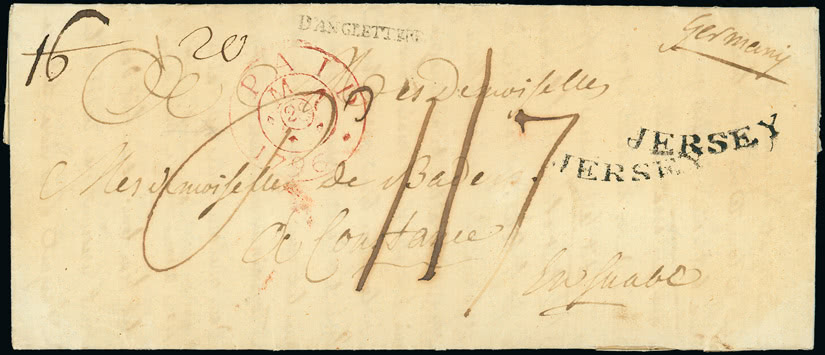 D'ANGLETERRE
Germany
16 20
PAID
M
1796
A Mesdemoiselles
JERSEY
JERSEY
Mesdemoiselles de Baden
117
à Constance
En Suabe